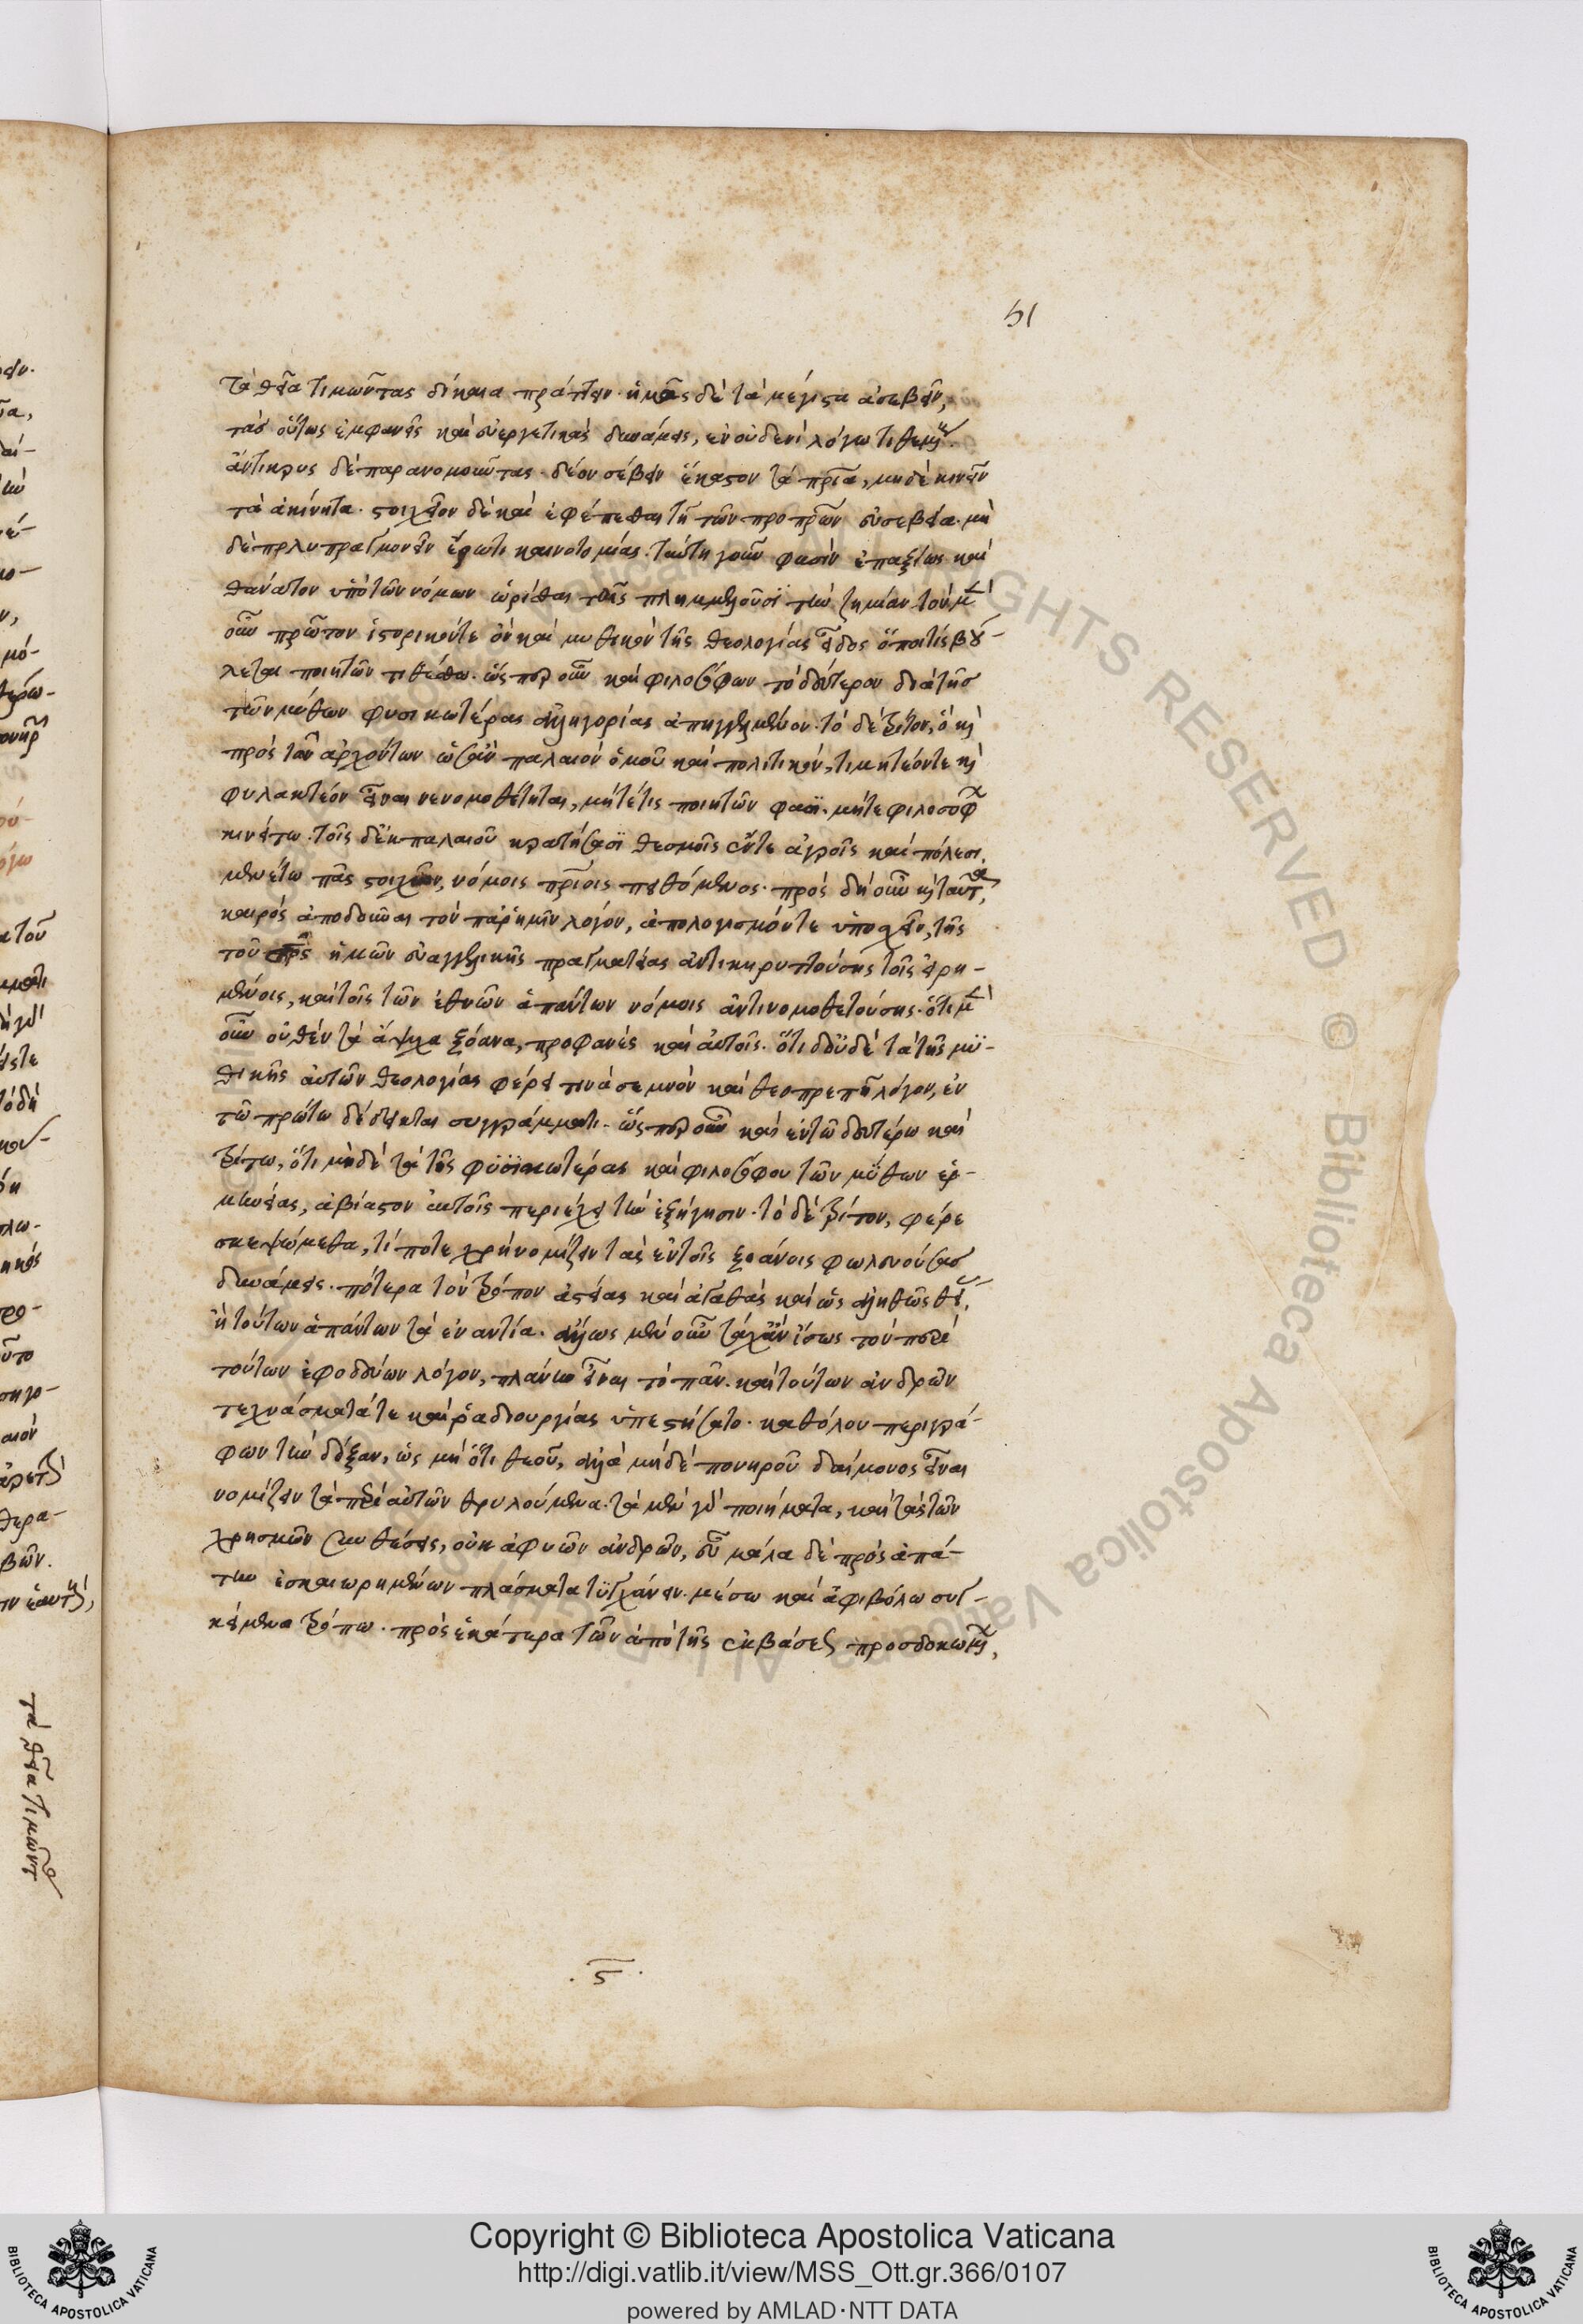 51
τὰ θεῖα τιμῶντας δίκαια πράττειν. ἡμᾶς δὲ τὰ μέγιστα ἀσεβεῖν,
τὰσ οὕτως ἐμφανεῖς καὶ εὐεργετικὰς δυνάμεις, ἐν οὐδενὶ λόγω τιθεμένους.
ἄντικρυς δὲ παρανομοῦντας. δέον σέβειν ἕκαστον τὰ πάτρια, μηδὲ κινεῖν
τὰ ἀκίνητα. στοιχεῖον δὲ καὶ ἐφέπεσθαι τῆ τῶν προπατόρων εὐσεβεία. μὴ
δὲ πολυπραγμονεῖν ἔρωτι καινοτομίας. ταύτη γοῦν φασὶν ἐπαξίως καὶ
θάνατον ὑπὸ τῶν νόμων ὡρίσθαι τοῖς πλημμελοῦσϊ τὴν ζημίαν. τὸ μὲν
οὖν πρῶτον ἱστορικόν τε ὂν καὶ μυθικὸν τῆς θεολογίας εἶδος ὅπη τὶς βού-
λεται ποιητῶν τιθέσθω. ὥσπερ οὖν καὶ φιλοσόφων τὸ δεύτερον διὰ τῆσ
τῶν μύθων φυσικωτέρας ἀλληγορίας ἀπηγγελμένον. τὸ δὲ τρίτον, ὃ καὶ
πρὸς τῶν ἀρχόντων ὡσὰν παλαιὸν ὁμοῦ καὶ πολιτικὸν, τιμητέον τε καὶ
φυλακτέον εἶναι νενομοθέτηται, μήτέ τις ποιητῶν φασϊ. μήτε φιλοσόφων
κινείτω. τοῖς δ' ἐκ παλαιοῦ κρατήσασϊ θεσμοῖς ἔν τε ἀγροῖς καὶ πόλεσι,
μενέτω πᾶς στοιχῶν, νόμοις πατρίοις πειθόμενος. πρὸς δὴ οὖν καὶ ταῦτα,
καιρὸς ἀποδοῦναι τὸν παρ' ἡμῖν λόγον, ἀπολογισμόν τε ὑποσχεῖν, τῆς
τοῦ σωτῆρος ἡμῶν εὐαγγελικῆς πραγματείας ἀντικηρυττούσης τοῖς εἰρη-
μένοις, καὶ τοῖς τῶν ἐθνῶν ἁπάντων νόμοις ἀντινομοθετούσης. ὅτι μὲν
οὖν οὐ θεῖν τὰ ἄψυχα ξόανα, προφανὲς καὶ αὐτοῖς. ὅτι δ' οὐδὲ τὰ τῆς μυ-
θικῆς αὐτῶν θεολογίας φέρει τινὰ σεμνὸν καὶ θεοπρεπῆ λόγον, ἐν
τῶ πρώτω δέδεικται συγγράμματι. ὥσπερ οὖν καὶ ἐν τῶ δευτέρω καὶ
τρίτω, ὅτι μὴ δὲ τὰ τῆς φυσϊκωτέρας καὶ φιλοσόφου τῶν μύθων ἑρ-
μηνείας, ἀβίαστον αὐτοῖς περιέχει τὴν ἐξήγησιν. τὸ δὲ τρίτον, φέρε
σκεψώμεθα, τί ποτε χρὴ νομίζειν τὰς ἐν τοῖς ξοάνοις φωλευούσασ
δυνάμεις. πότερα τὸν τρόπον ἀστείας καὶ ἀγαθὰς καὶ ὡς ἀληθῶς θείας,
ἢ τούτων ἁπάντων τὰ ἐναντία. ἄλλως μὲν οὖν τάχ' ἄν ἴσως τὸν περὶ
τούτων ἐφοδεύων λόγον, πλάνην εἶναι τὸ πᾶν. καὶ τούτων ἀνδρῶν
τεχνάσματά τε καὶ ῥαδιουργίας ὑπεστήσατο. καθόλου περιγρά-
φων τὴν δόξαν, ὡς μὴ ὅτι θεοῦ, ἀλλὰ μὴ δὲ πονηροῦ δαίμονος εἶναι
νομίζειν τὰ περὶ αὐτῶν θρυλούμενα. τὰ μὲν γὰρ ποιήματα, καὶ τὰς τῶν
χρησμῶν συνθέσεις, οὐκ ἀφυῶν ἀνδρῶν, εὖ μάλα δὲ πρὸς ἀπά-
την ἐσκαιωρημένων πλάσματα τϋγχάνειν. μέσω καὶ ἀμφιβόλω συγ-
κείμενα τρόπω. πρὸς ἑκάτερα τῶν ἀπὸ τῆς ἐκβάσεως προσδοκωμένων,
.ς.
τὰ θεῖα τιμῶντας
RIGHTS RESERVED © Biblioteca Apostolica Vaticana
Copyright © Biblioteca Apostolica Vaticana
http://digi.vatlib.it/view/MSS_Ott.gr.366/0107
powered by AMLAD·NTT DATA
BIBLIOTECA APOSTOLICA VATICANA
BIBLIOTECA APOSTOLICA VATICANA